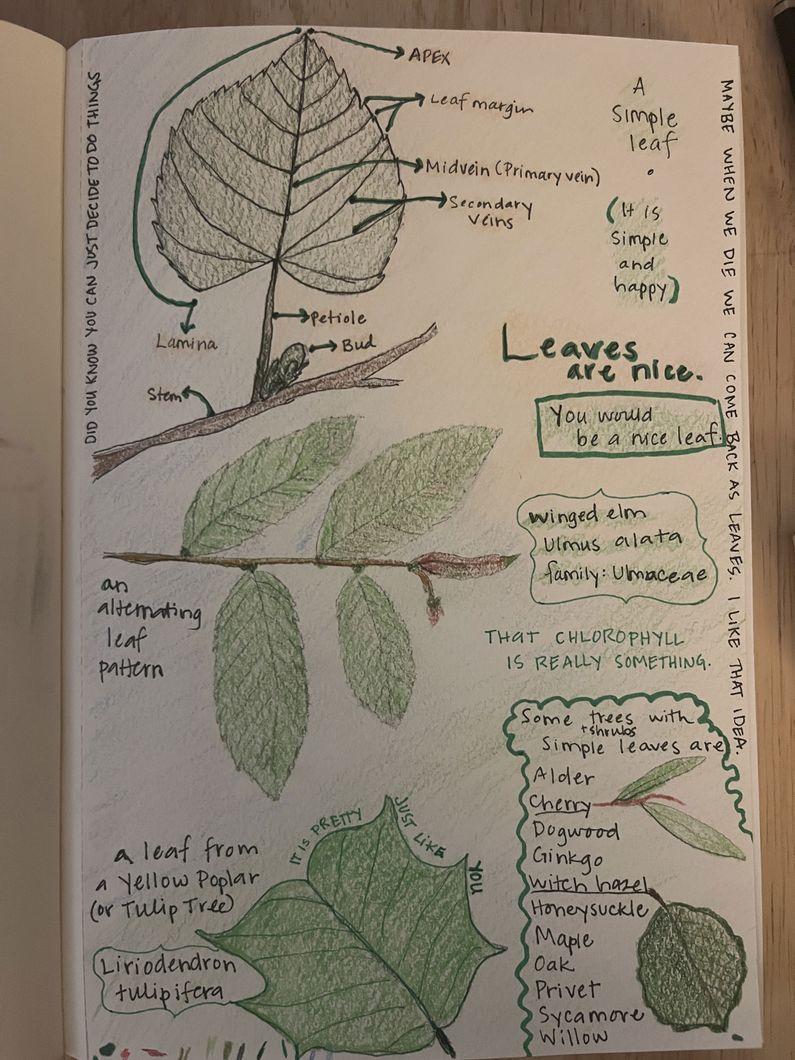 DID YOU KNOW YOU CAN JUST DECIDE TO DO THINGS
APEX
Leaf margin
Midvein (Primary vein)
Secondary
veins
Petiole
Bud
Lamina
Stem
A
Simple
leaf
.
(It is
simple
and
happy)
MAYBE WHEN WE DIE WE CAN COME BACK AS LEAVES. I LIKE THAT IDEA.
Leaves
are nice.
You would
be a nice leaf.
winged elm
Ulmus alata
family: Ulmaceae
an
alternating
leaf
pattern
THAT CHLOROPHYLL
IS REALLY SOMETHING.
Some trees with
+shrubs
Simple leaves are
Alder
Cherry
Dogwood
Ginkgo
witch hazel
Honeysuckle
Maple
Oak
Privet
Sycamore
Willow
a leaf from
a Yellow Poplar
(or Tulip Tree)
Liriodendron
tulipifera
IT IS PRETTY
JUST LIKE
YOU